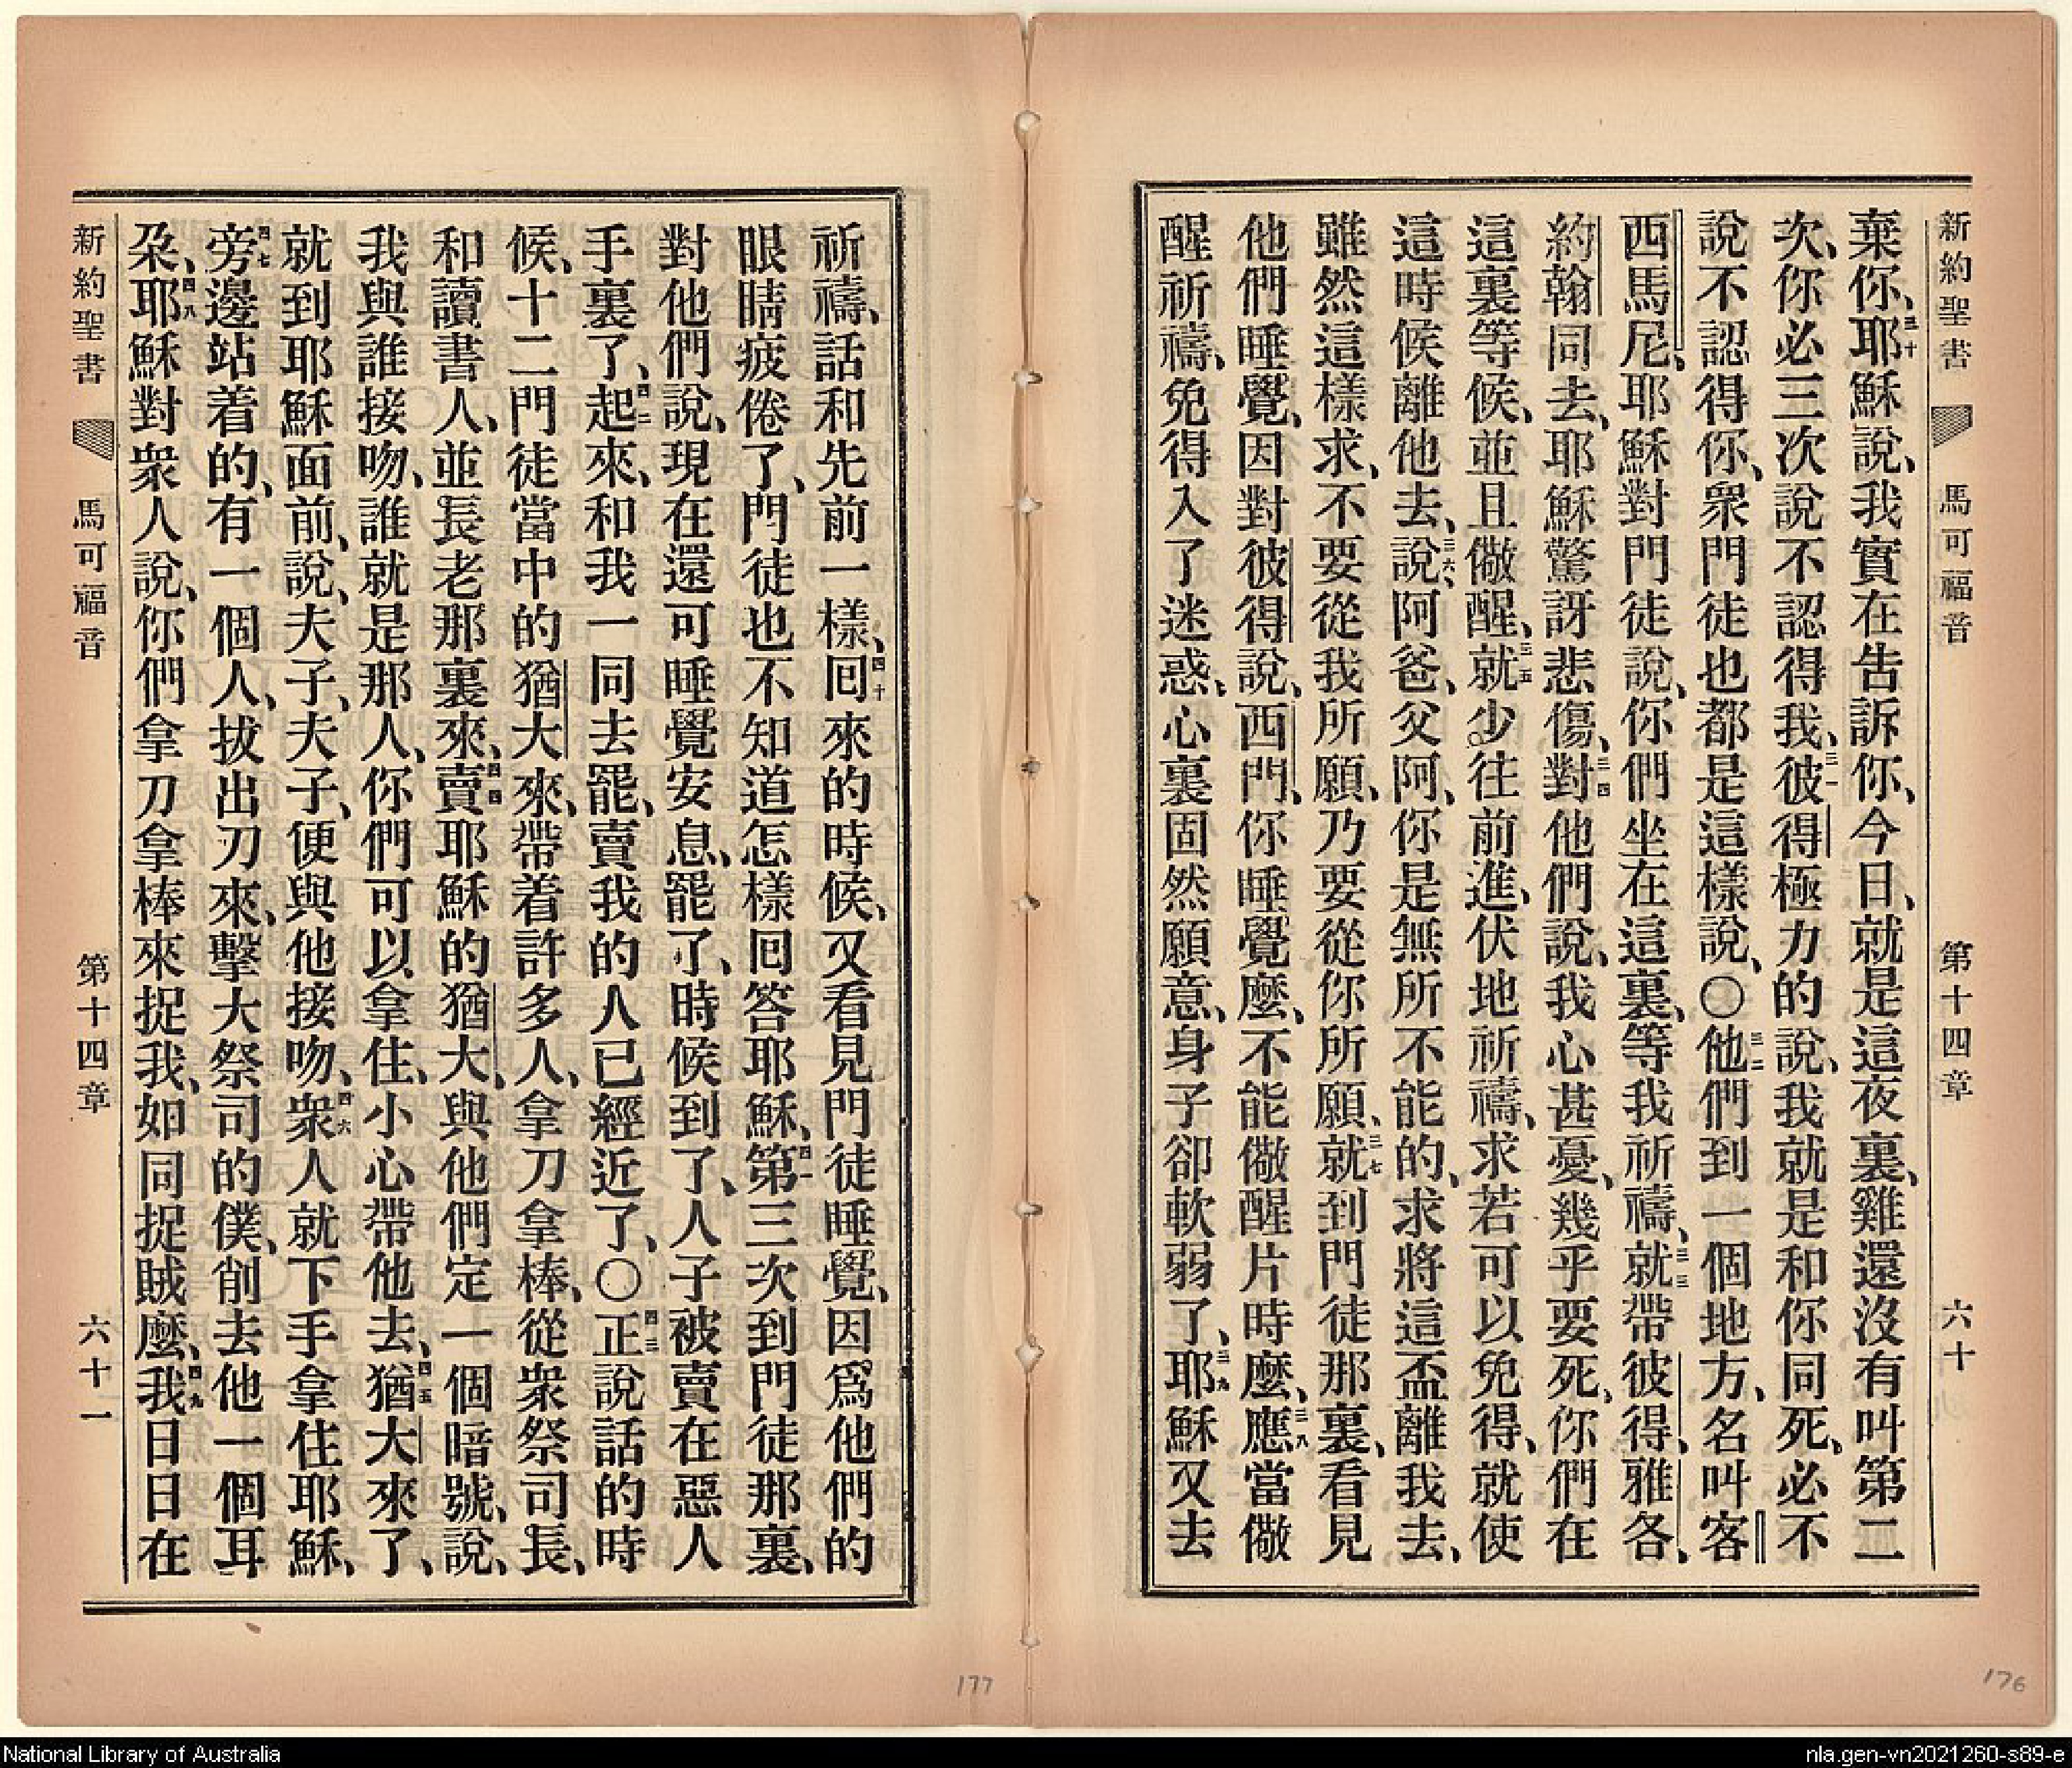 新約聖書 馬可福音 第十四章 六十
棄你、三十耶穌說、我實在告訴你、今日、就是這夜裏、雞還沒有叫第二
次、你必三次說不認得我、三一彼得極力的說、我就是和你同死、必不
說不認得你、衆門徒也都是這樣說、〇三二他們到一個地方、名叫客
西馬尼、耶穌對門徒說、你們坐在這裏、等我祈禱、三三就帶彼得、雅各、
約翰同去、耶穌驚訝悲傷、三四對他們說、我心甚憂、幾乎要死、你們在
這裏等候、並且儆醒、三五就少往前進、伏地祈禱、求若可以免得、就使
這時候離他去、三六說、阿爸、父阿、你是無所不能的、求將這盃離我去、
雖然這樣求、不要從我所願、乃要從你所願、三七就到門徒那裏、看見
他們睡覺、因對彼得說、西門、你睡覺麼、不能儆醒片時麼、三八應當儆
醒祈禱、免得入了迷惑、心裏固然願意、身子卻軟弱了、三九耶穌又去
祈禱、話和先前一樣、四十囘來的時候、又看見門徒睡覺、因爲他們的
眼睛疲倦了、門徒也不知道怎樣囘答耶穌、四一第三次到門徒那裏、
對他們說、現在還可睡覺安息、罷了、時候到了、人子被賣在惡人
手裏了、四二起來、和我一同去罷、賣我的人已經近了、〇四三正說話的時
候、十二門徒當中的猶大來、帶着許多人、拿刀拿棒、從衆祭司長、
和讀書人、並長老那裏來、四四賣耶穌的猶大、與他們定一個暗號、說、
我與誰接吻、誰就是那人、你們可以拿住、小心帶他去、四五猶大來了、
就到耶穌面前、說、夫子、夫子、便與他接吻、四六衆人就下手拿住耶穌、
四七旁邊站着的、有一個人、拔出刀來、擊大祭司的僕、削去他一個耳
朶、四八耶穌對衆人說、你們拿刀拿棒來捉我、如同捉賊麼、四九我日日在
新約聖書 馬可福音 第十四章 六十一
177
176
National Library of Australia
nla.gen-vn2021260-s89-e